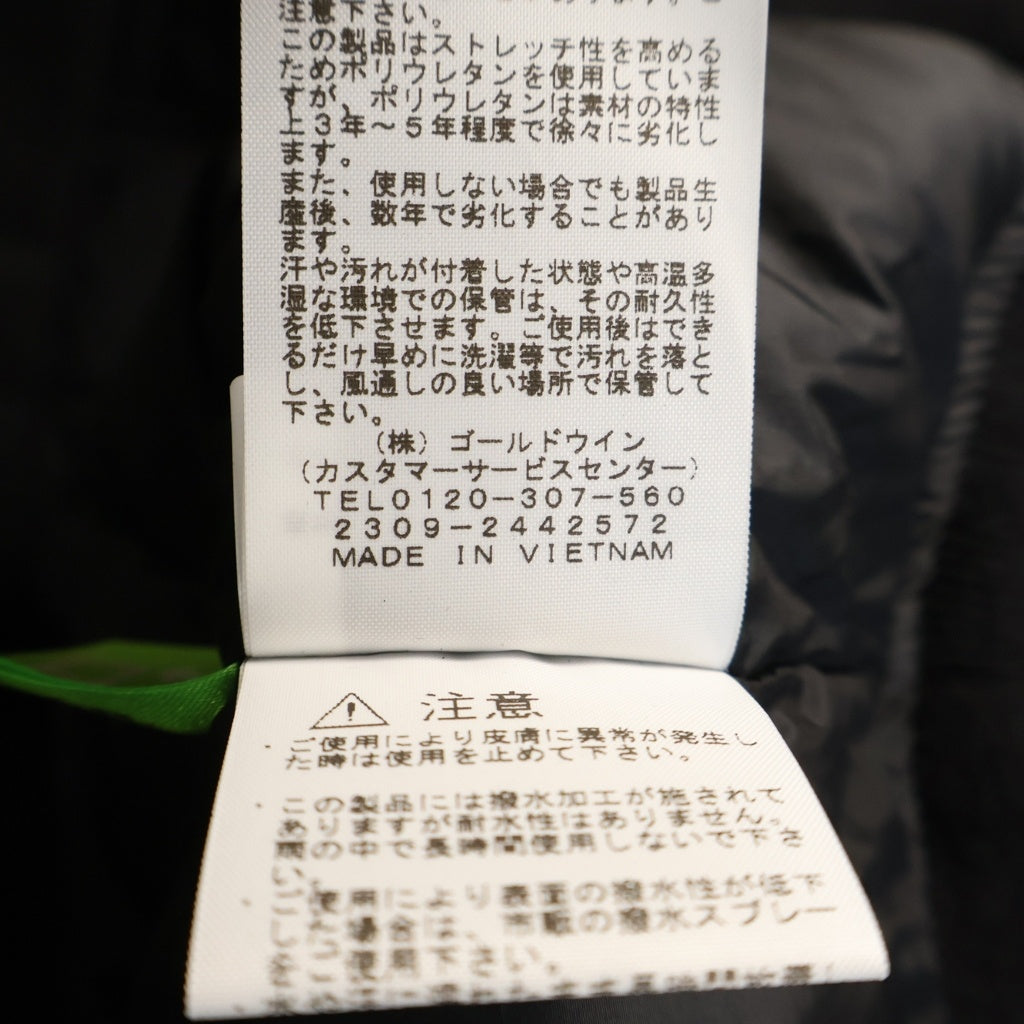 注意下さい。
この製品はストレッチ性を高める
ためポリウレタンを使用していま
すが、ポリウレタンは素材の特性
上3年～5年程度で徐々に劣化し
ます。
また、使用しない場合でも製品生
産後、数年で劣化することがあり
ます。
汗や汚れが付着した状態や高温多
湿な環境での保管は、その耐久性
を低下させます。ご使用後はでき
るだけ早めに洗濯等で汚れを落と
し、風通しの良い場所で保管して
下さい。
（株）ゴールドウイン
（カスタマーサービスセンター）
TEL0120-307-560
2309-2442572
MADE IN VIETNAM
注意
・ご使用により皮膚に異常が発生し
た時は使用を止めて下さい。
・この製品には撥水加工が施されて
ありますが耐水性はありません。
雨の中で長時間使用しないで下さ
い。
ご使用により表面の撥水性が低下
した場合は、市販の撥水スプレー
をご使用下さい。